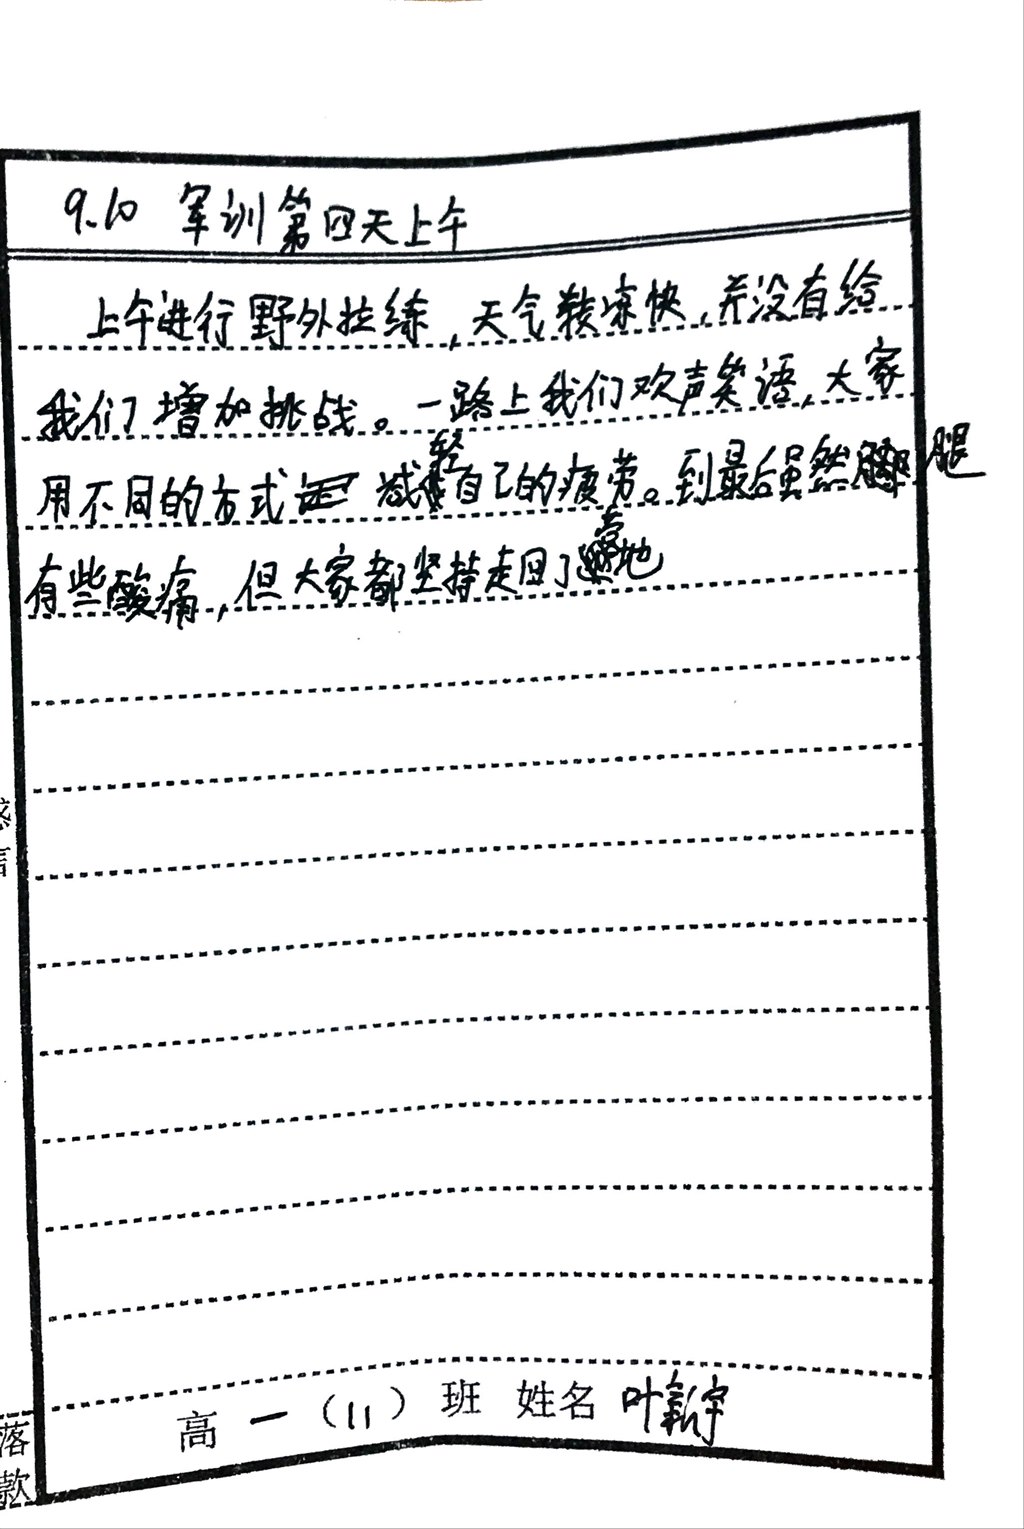 9.10 军训第四天上午
上午进行野外拉练，天气较凉快，并没有给
我们增加挑战。一路上我们欢声笑语，大家
用不同的方式减轻自己的疲劳。到最后虽然腿
有些酸痛，但大家都坚持走回了营地
感
言
高一（11）班 姓名 叶新宇
落
款